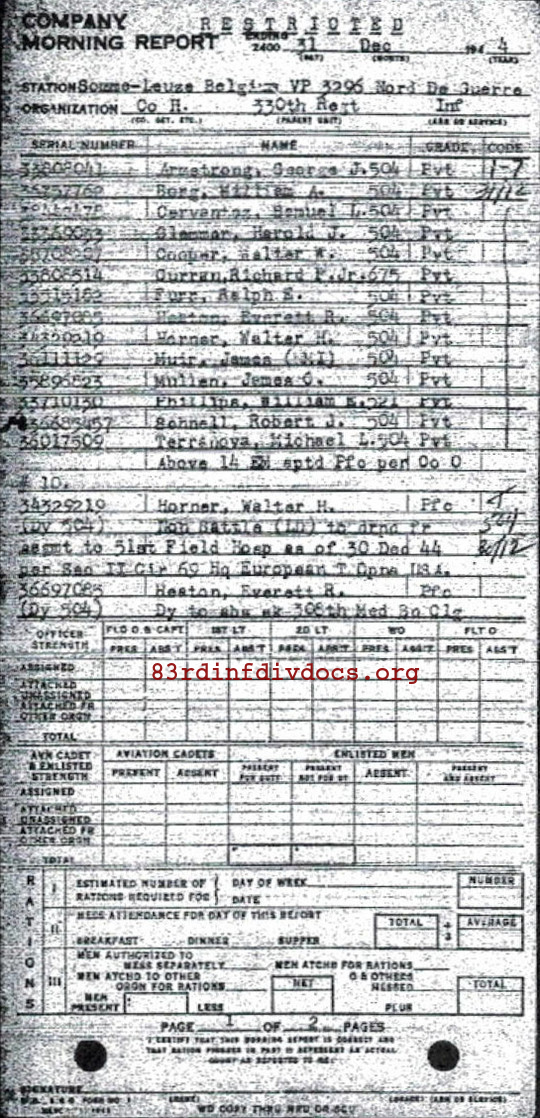 COMPANY
MORNING REPORT
RESTRICTED
ENDING
2400 31 Dec 194 4
(DAY) (MONTH) (YEAR)
STATION Somme-Leuze Belgium VP 3296 Nord De Guerre
ORGANIZATION Co H. 330th Regt Inf
(CO. DET. ETC.) (PARENT UNIT) (ARM OR SERVICE)
SERIAL NUMBER NAME GRADE CODE
Armstrong, George J. 504 Pvt
Berg, William A. 504 Pvt 31/12
Cervantez, Samuel L. 504 Pvt
Harold J. 504 Pvt
Cooper, Walter W. 504 Pvt
33808514 Curran, Richard P. Jr. 675 Pvt
Furr, Ralph E. 504 Pvt
36697085 Heaton, Everett R. 504 Pvt
34329219 Horner, Walter H. 504 Pvt
Muir, James (NMI) 504 Pvt
35895823 Mullen, James O. 504 Pvt
33710130 Phillips, William E. 521 Pvt
36685457 Schnell, Robert J. 504 Pvt
36017509 Terranova, Michael L. 504 Pvt
Above 14 EM aptd Pfc per Co O
# 10.
34329219 Horner, Walter H. Pfc
(Dy 504) Non Battle (LD) to drng fr
asgmt to 51st Field Hosp as of 30 Dec 44 30/12
per Sec II Cir 69 Hq European T Opns USA.
36697085 Heaton, Everett R. Pfc
(Dy 504) Dy to abs sk 308th Med Bn Clg
OFFICER STRENGTH FLD O & CAPT 1ST LT 2D LT WO FLT O
PRES ABS'T PRES ABS'T PRES ABS'T PRES ABS'T PRES ABS'T
ASSIGNED
83rdinfdivdocs.org
ATTACHED UNASSIGNED
ATTACHED FR OTHER ORGN
TOTAL
AVN CADET & ENLISTED STRENGTH AVIATION CADETS ENLISTED MEN
PRESENT ABSENT PRESENT FOR DUTY PRESENT NOT FOR DY ABSENT PRESENT AND ABSENT
ASSIGNED
ATTACHED UNASSIGNED
ATTACHED FR OTHER ORGN
TOTAL
RATIONS
I ESTIMATED NUMBER OF RATIONS REQUIRED FOR DAY OF WEEK NUMBER
DATE
II MESS ATTENDANCE FOR DAY OF THIS REPORT TOTAL ÷ 3 AVERAGE
BREAKFAST DINNER SUPPER
III MEN AUTHORIZED TO MESS SEPARATELY MEN ATCHD FOR RATIONS
MEN ATCHD TO OTHER ORGN FOR RATIONS NET O & OTHERS MESSED TOTAL
MEN PRESENT LESS PLUS
PAGE 1 OF 2 PAGES
I CERTIFY THAT THIS MORNING REPORT IS CORRECT AND
THAT RATION FIGURES IN PART III REPRESENT AN ACTUAL
COUNT AS REPORTED TO ME.
SIGNATURE
FORM NO. 1 (NAME) (GRADE) (ARM OR SERVICE)
WD COPY THRU MRU OR SCU